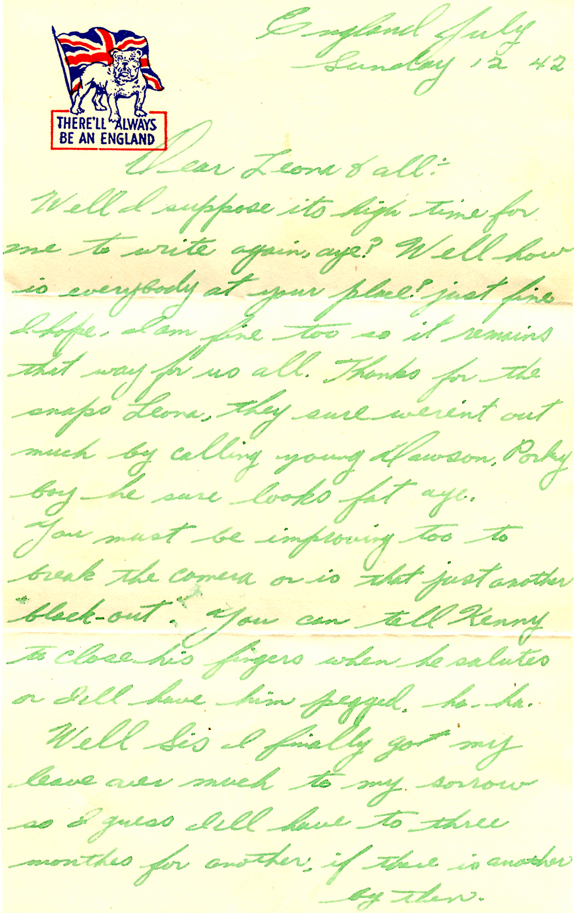 England July
Sunday 12 42
THERE'LL ALWAYS
BE AN ENGLAND
Dear Leona & all:
Well I suppose its high time for
me to write again, aye? Well how
is everybody at your place? just fine
I hope. I am fine too so it remains
that way for us all. Thanks for the
snaps Leona, they sure weren't out
much by calling young Dawson, Porky
boy he sure looks fat aye.
You must be improving too to
break the camera or is that just another
"black-out". You can tell Kenny
to close his fingers when he salutes
or I'll have him pegged. ha. ha.
Well Sis I finally got my
leave over much to my sorrow
so I guess I'll have to three
monthes for another, if there is another
by then.